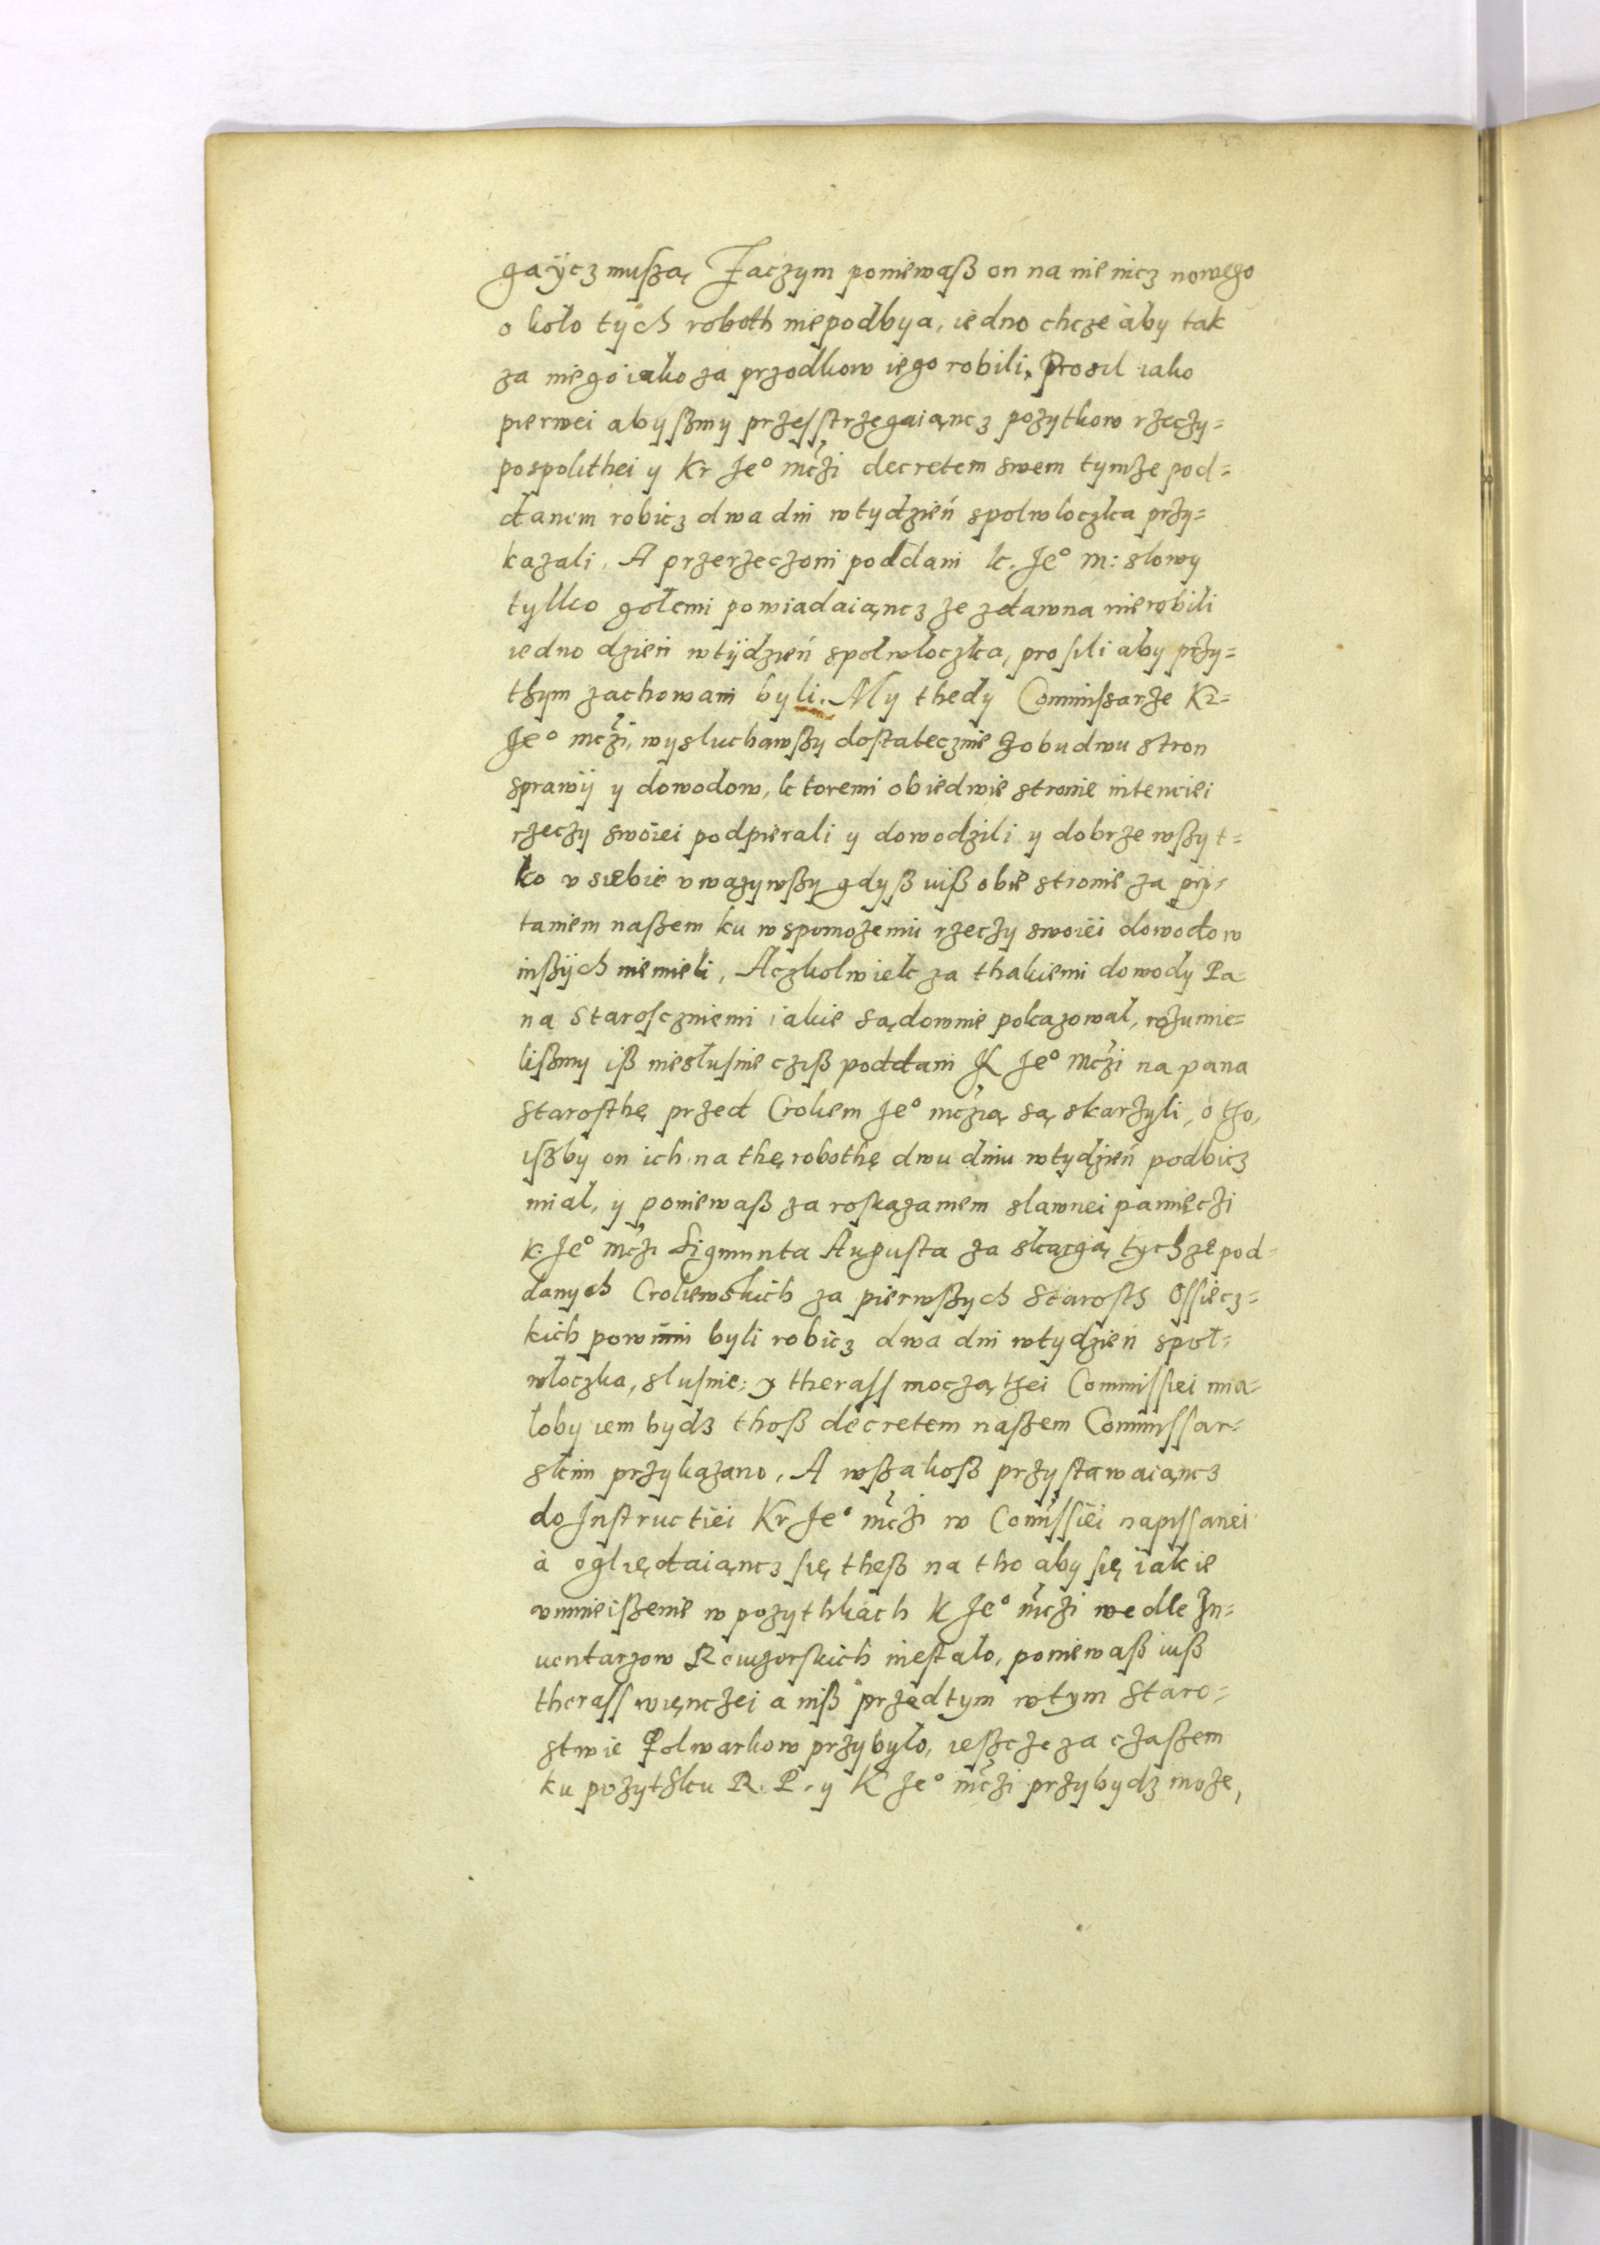 gaÿcz muszą, Zaczym poniewaß on na nie nicz nowego
o koło tych roboth niepodbya, iedno chcze aby tak
za niego iako za przodkow iego robili, Prosil iako
pierwei abyßmy przesstrzegaiąncz pożytkow rzeczy=
pospolithei y Kr Je° mczi decretem swem tymże pod=
danem robicz dwa dni wtydzień spolwloczka przy=
kazali, A przerzeczoni poddani k. Je° m: słowy
tylko gołemi powiadaiąncz ze zdawna nierobili
iedno dzień wtÿdzień spolwloczka, prosili aby przy=
thym zachowani byli. My thedy Commissarze Kr=
Je° mczi, wysluchawßy dostatecznie zobudwu stron
sprawÿ y dowodow, ktoremi obiedwie stronie intenciei
rzeczy swoiei podpierali y dowodzili y dobrze wßyt=
ko v siebie vwazywßy gdyß iuß obie stronie za pÿ=
taniem naßem ku wspomożeniu rzeczy swoiei dowodow
inßÿch niemieli, Aczkolwiek za thakiemi dowody Pa
na Starosczniemi iakie sądownie pokazowal, rozumie=
lißmy iß niesłusnie cziß poddani K Je° Mczi na pana
Starosthę przed Croliem Je° mczią są skarżyli, o tho,
ißby on ich na thę robothę dwu dniu wtydzień podbicz
mial, y poniewaß za roskazaniem slawnei pamieczi
K. Je° Mczi Sigmunta Augusta za skargą tychże pod=
danych Croliewskich za pierwßych Starosth Ossiecz=
kich powinni byli robicz dwa dni wtydzień społ=
włoczka, slusnie: y therass moczą thei Commissiei mia=
loby iem bydz thoß decretem naßem Commissar=
skim przykazano, A wßakoß przystawaiąncz
do Instructiei Kr Je° mczi w Comissiei napissanei
à ogliędaiąncz się theß na tho aby się iakie
vmnieißenie w pozythkach K Je° mczi wedle In=
uentarzow Rewizorskich niestało, poniewaß iuß
therass więnczei a niß przedtym wtym Staro=
stwie Folwarkow przybyło, ießcze za czaßem
ku pożythku R. P. y K Je° mczi przybydz może,